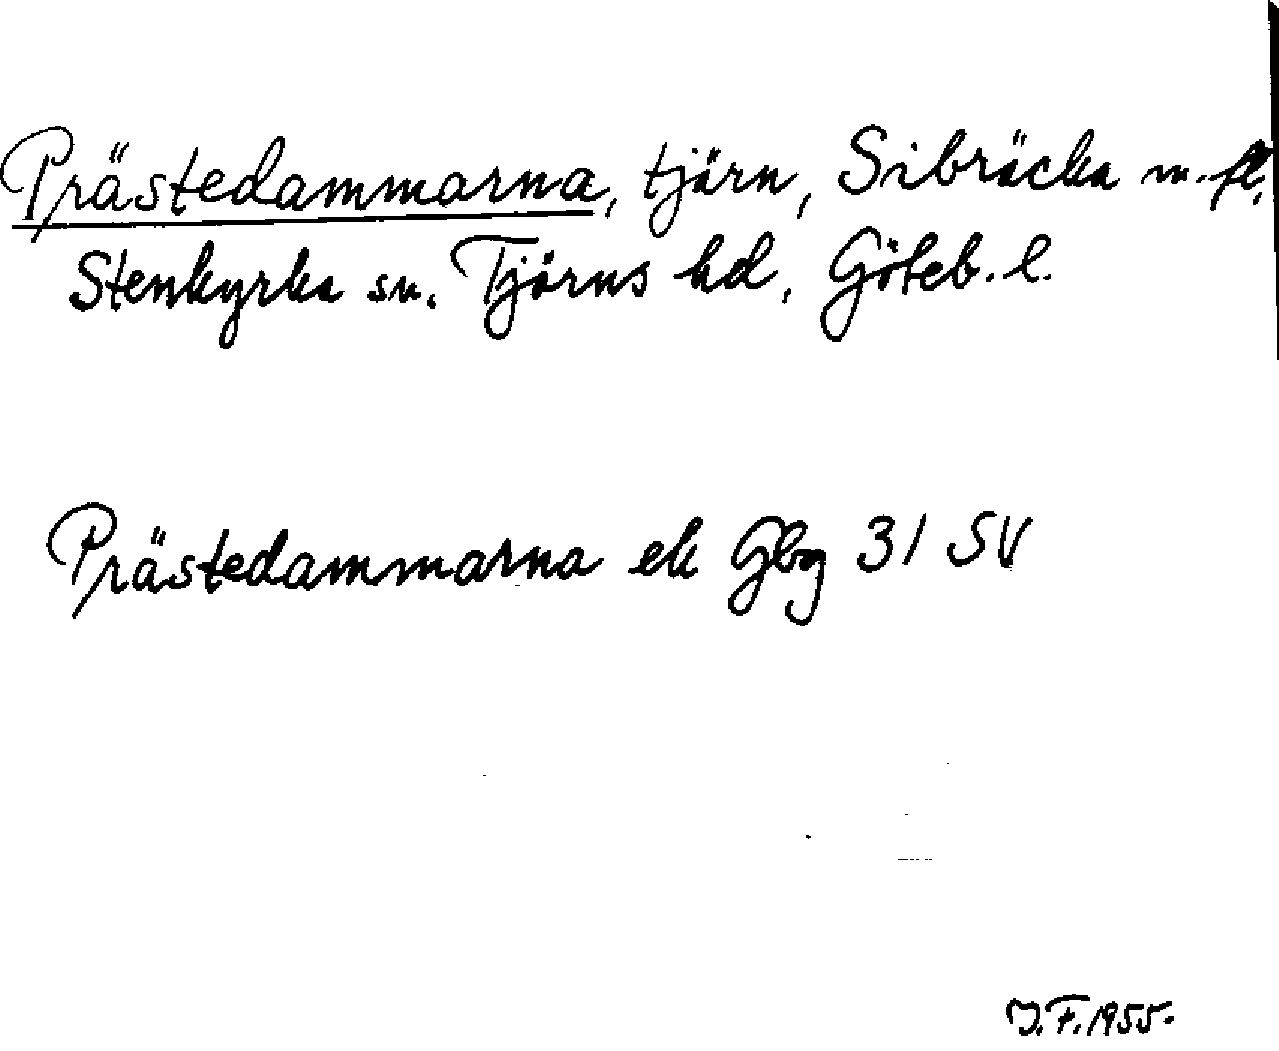 Prästedammarna, tjärn, Sibräcka m. fl.
Stenkyrka sn. Tjörns hd, Göteb. l.
Prästedammarna ek Gbg 31 SV
J. F. 1955.